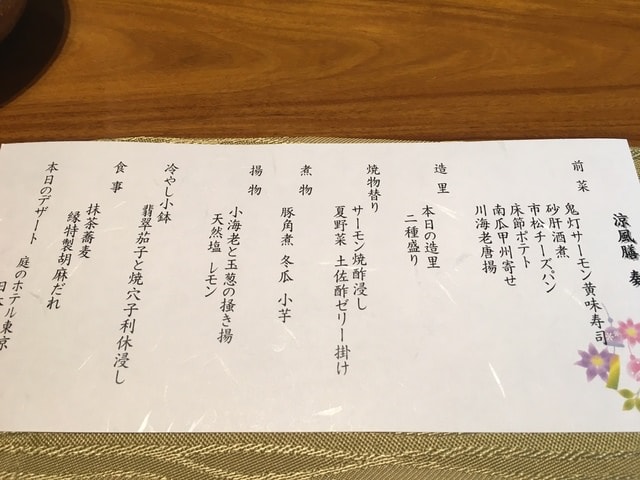 涼風膳
前菜
鬼灯サーモン黄味寿司
砂肝酒煮
市松チーズパン
床節ポテト
南瓜甲州寄せ
川海老唐揚
造里
本日の造里
二種盛り
焼物替り
サーモン焼酢浸し
夏野菜 土佐酢ゼリー掛け
煮物
豚角煮 冬瓜 小芋
揚物
小海老と玉葱の掻き揚
天然塩 レモン
冷やし小鉢
翡翠茄子と焼穴子利休浸し
食事
抹茶蕎麦
縁特製胡麻だれ
本日のデザート
庭のホテル東京
日本